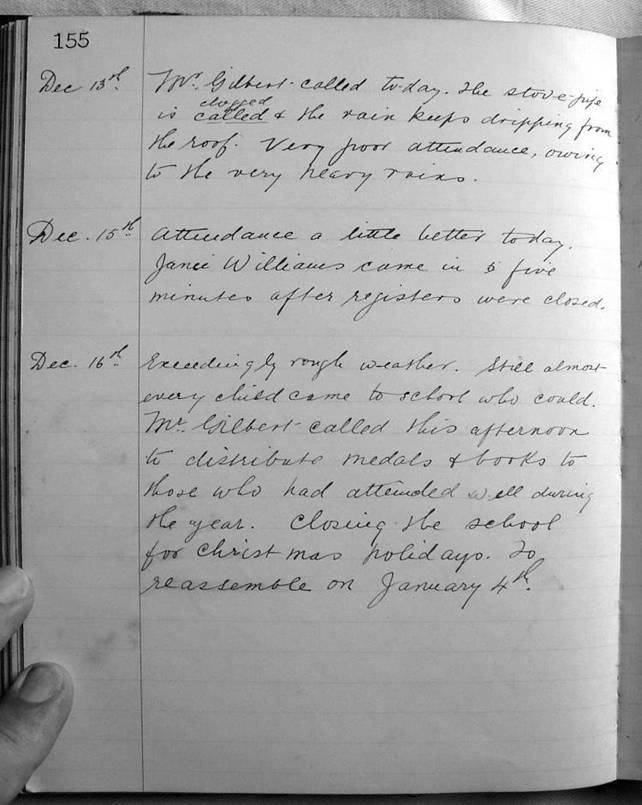 155
Dec 13th. Mr. Gilbert called to-day. The stove-pipe
clogged
is called & the rain keeps dripping from
the roof. Very poor attendance, owing
to the very heavy rains.
Dec. 15th Attendance a little better today.
Janie Williams came in 5 five
minutes after registers were closed.
Dec. 16th Exceedingly rough weather. Still almost
every child came to school who could.
Mr. Gilbert called this afternoon
to distribute medals & books to
those who had attended well during
the year. Closing the school
for Christmas holidays. To
reassemble on January 4th.